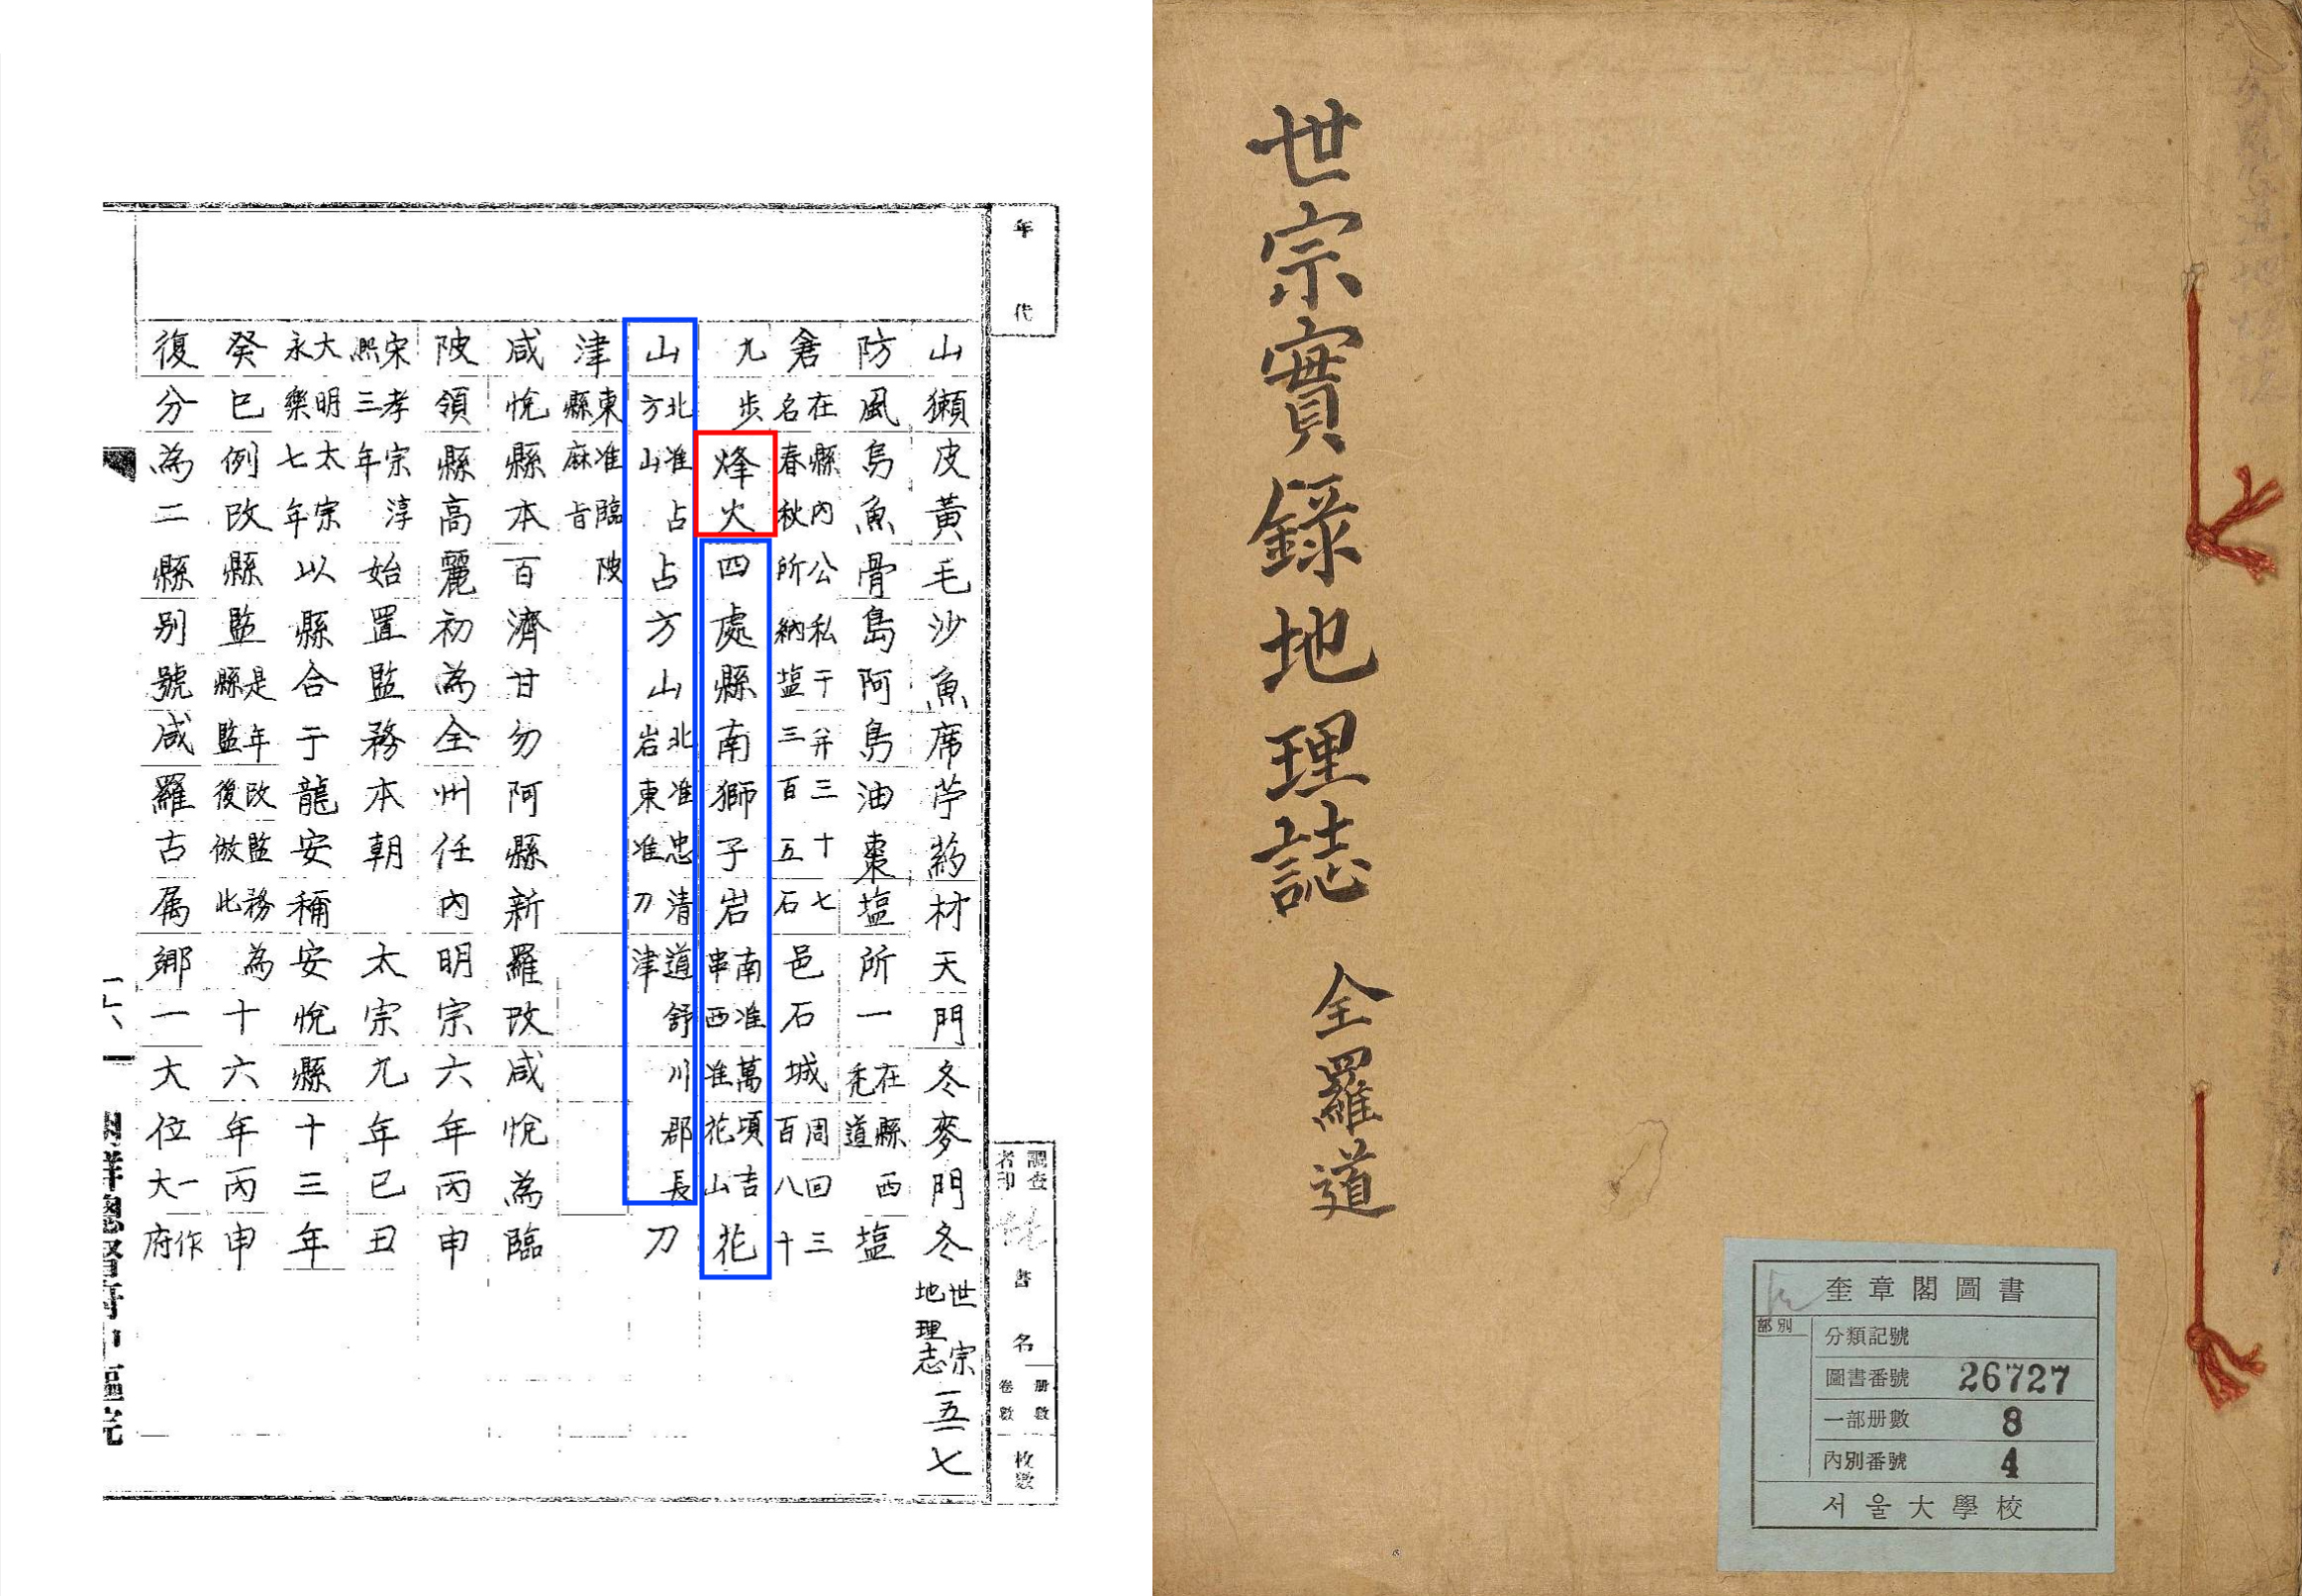 年代
山獺皮黃毛沙魚席苧葯材天門冬麥門冬
防風島魚骨島阿島油棗塩所一在縣西禿道塩
倉在縣內公私干幷三十七名春秋所納塩三百五石邑石城周回三百八十
九步烽火四處縣南獅子岩南准萬頃吉串西准花山花
山北准占方山占方山北准忠清道舒川郡長岩東准刀津刀
津東准臨陂縣麻旨
咸悅縣本百濟甘勿阿縣新羅改咸悅為臨
陂領縣高麗初為全州任內明宗六年丙申
宋孝宗淳熙三年始置監務本朝太宗九年己丑
大明太宗永樂七年以縣合于龍安稱安悅縣十三年
癸巳例改縣監是年改監務縣監後倣此為十六年丙申
復分為二縣別號咸羅古属鄉一大位一作大府
調査者印
書名
册數
卷數
枚數
世宗地理志
一五一七
朝鮮總督府中樞院
世宗實錄地理誌 全羅道
奎章閣圖書
部別
分類記號
圖書番號 26727
一部册數 8
內別番號 4
서울大學校